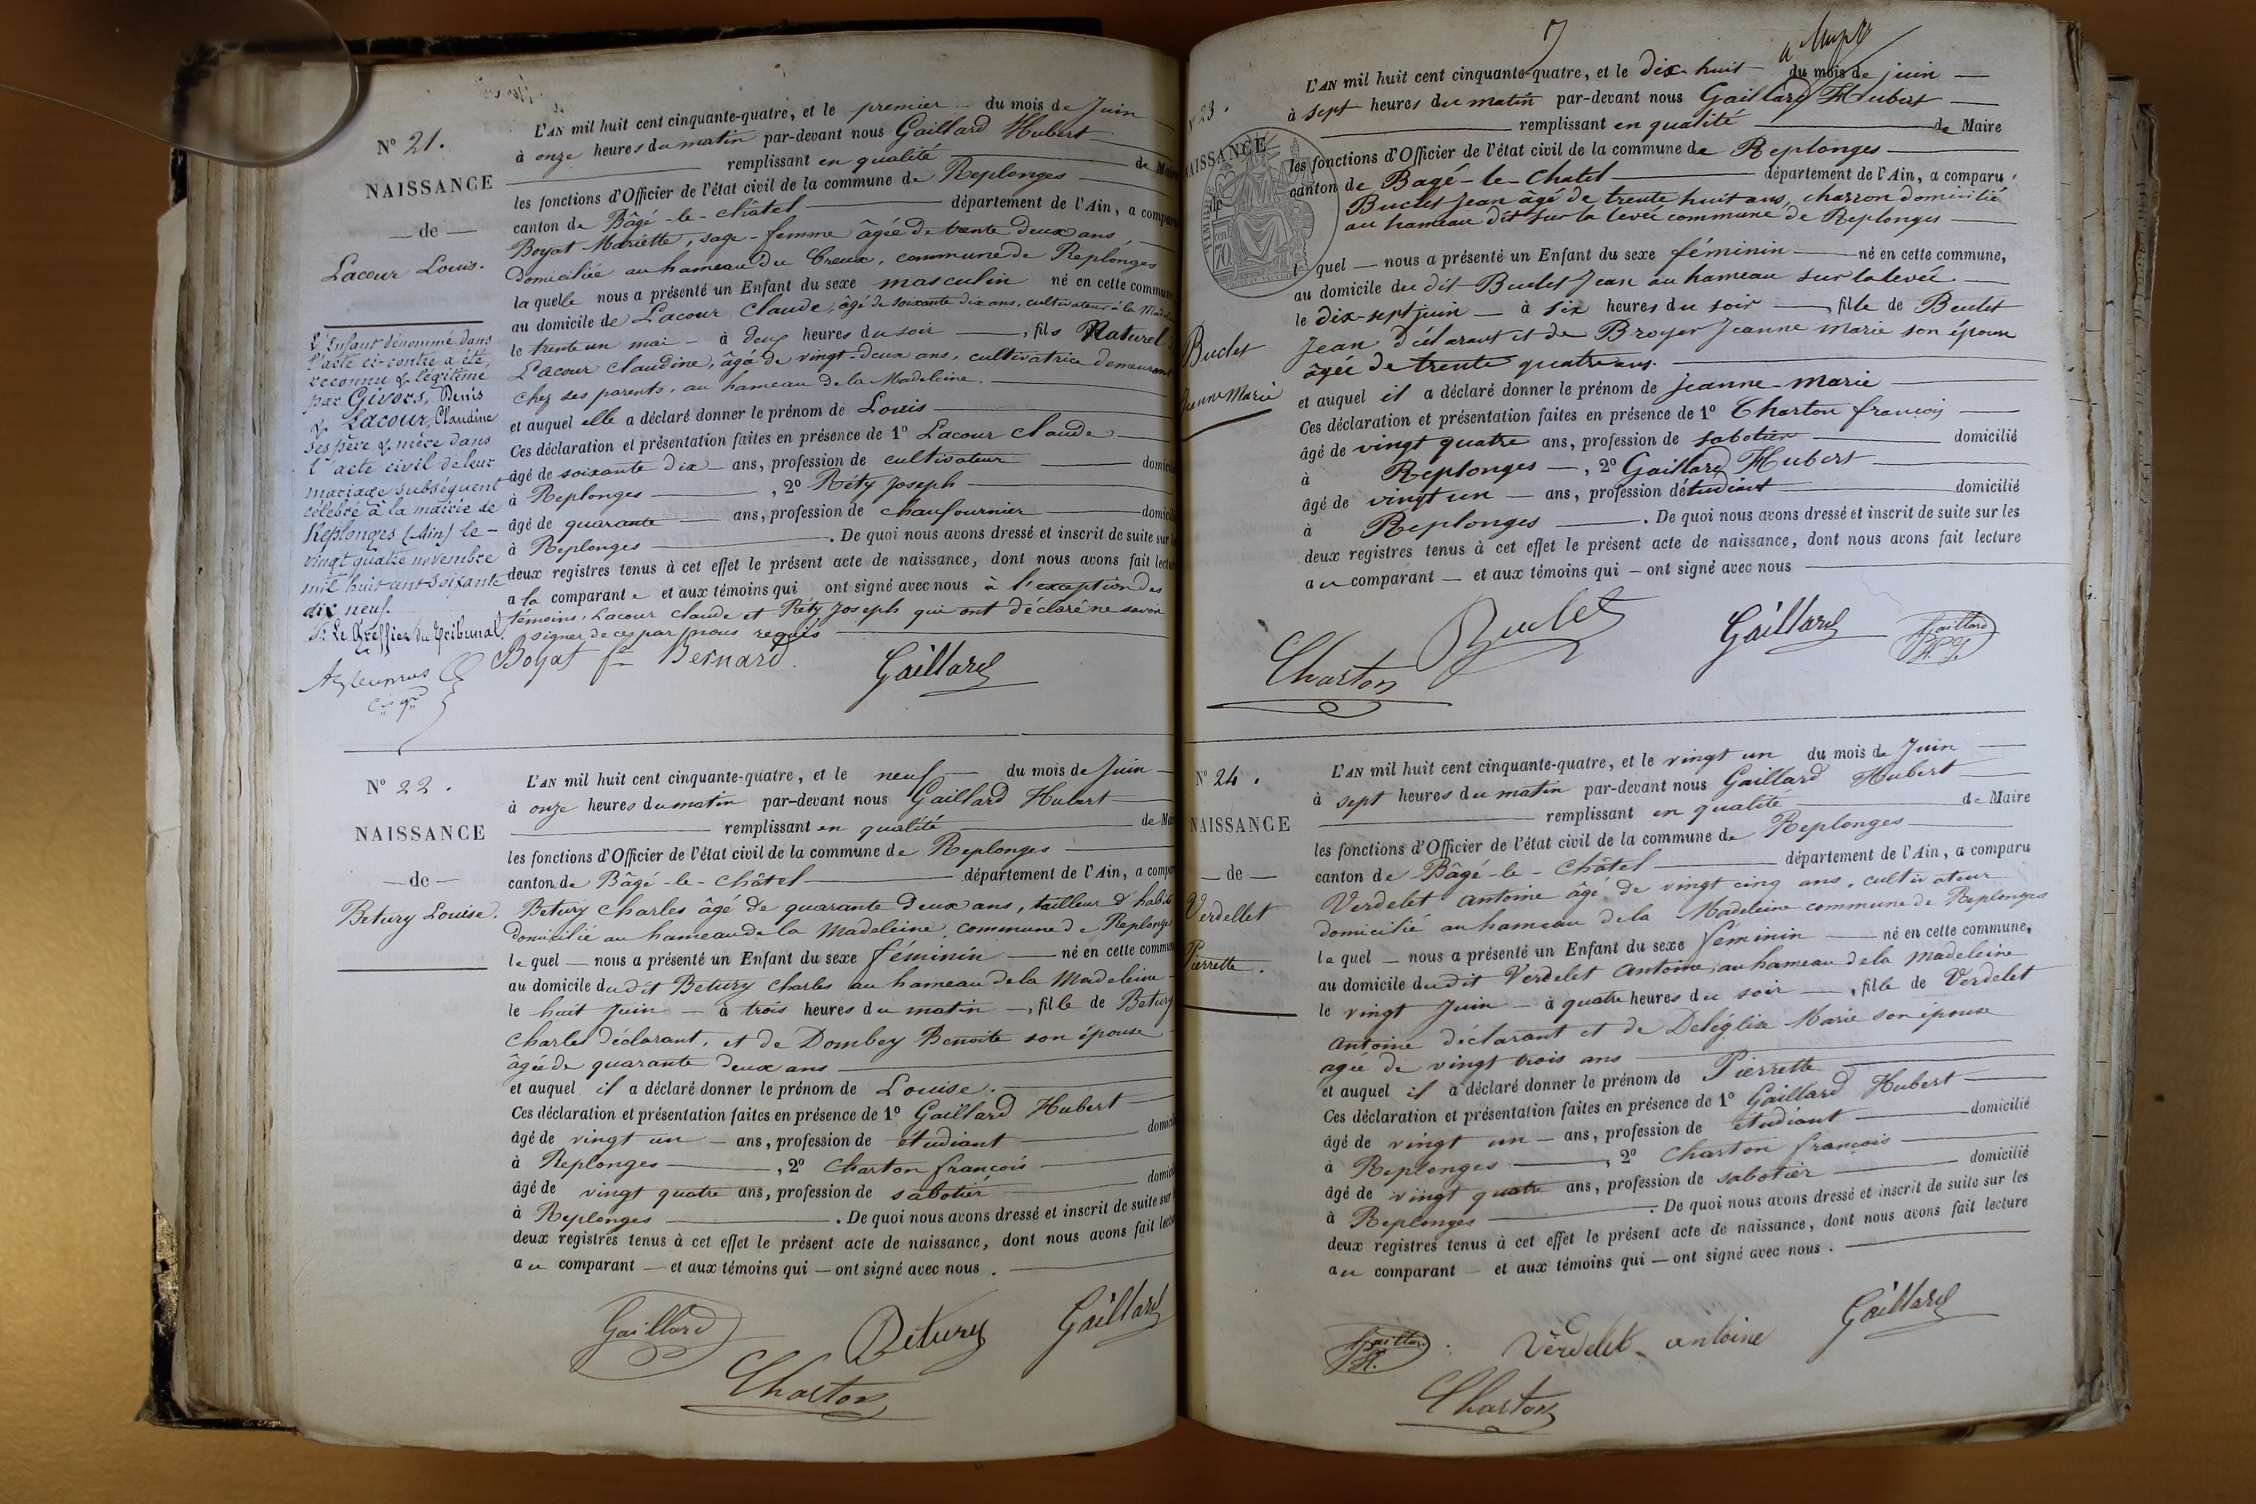 Nº 21.
NAISSANCE
— de —
Lacour Louis.
L'Enfant dénommé dans
l'acte ci-contre a été
reconnu & légitimé
par Givors, Denis
& Lacour, Claudine
ses père & mère dans
l'acte civil de leur
mariage subséquent
célébré à la mairie de
Replonges (Ain) le
vingt quatre novembre
mil huit cent soixante
dix neuf.
Le Greffier du Tribunal,
L'AN mil huit cent cinquante-quatre, et le premier du mois de Juin
à onze heures du matin par-devant nous Gaillard Hubert
remplissant en qualité de Maire
les fonctions d'Officier de l'état civil de la commune de Replonges
canton de Bâgé-le-châtel département de l'Ain, a comparu
Boyat Mariette, sage-femme âgée de trente deux ans,
domiciliée au hameau du Creux, commune de Replonges
la quelle nous a présenté un Enfant du sexe masculin né en cette commune
au domicile de Lacour Claude, âgé de soixante dix ans, cultivateur à la Madeleine
le trente un mai à deux heures du soir, fils Naturel
Lacour Claudine, âgée de vingt-deux ans, cultivatrice demeurant
chez ses parents, au hameau de la Madeleine.
et auquel elle a déclaré donner le prénom de Louis
Ces déclaration et présentation faites en présence de 1º Lacour Claude
âgé de soixante dix ans, profession de cultivateur domicilié
à Replonges, 2º Réty Joseph
âgé de quarante ans, profession de chaufournier domicilié
à Replonges. De quoi nous avons dressé et inscrit de suite sur les
deux registres tenus à cet effet le présent acte de naissance, dont nous avons fait lecture
a la comparante et aux témoins qui ont signé avec nous à l'exception des
témoins, Lacour Claude et Réty Joseph qui ont déclaré ne savoir
signer de ces par nous requis
Boyat fe Bernard. Gaillard
Nº 22.
NAISSANCE
— de —
Betury Louise.
L'AN mil huit cent cinquante-quatre, et le neuf du mois de Juin
à onze heures du matin par-devant nous Gaillard Hubert
remplissant en qualité de Maire
les fonctions d'Officier de l'état civil de la commune de Replonges
canton de Bâgé-le-châtel département de l'Ain, a comparu
Betury Charles âgé de quarante deux ans, tailleur d'habits
domicilié au hameau de la Madeleine, commune de Replonges
le quel nous a présenté un Enfant du sexe féminin né en cette commune
au domicile du dit Betury Charles au hameau de la Madeleine
le huit Juin à trois heures du matin, fille de Betury
Charles déclarant, et de Dombey Benoite son épouse
âgée de quarante deux ans
et auquel il a déclaré donner le prénom de Louise.
Ces déclaration et présentation faites en présence de 1º Gaillard Hubert
âgé de vingt un ans, profession de étudiant domicilié
à Replonges, 2º Charton françois
âgé de vingt quatre ans, profession de sabotier domicilié
à Replonges. De quoi nous avons dressé et inscrit de suite sur
deux registres tenus à cet effet le présent acte de naissance, dont nous avons fait lecture
au comparant et aux témoins qui ont signé avec nous.
Gaillard Betury Gaillard
Charton
7
Nº 23.
NAISSANCE
de
Buclet
Jeanne Marie
L'AN mil huit cent cinquante-quatre, et le dix-huit du mois de juin
à sept heures du matin par-devant nous Gaillard Hubert
remplissant en qualité de Maire
les fonctions d'Officier de l'état civil de la commune de Replonges
canton de Bagé-le-Chatel département de l'Ain, a comparu
Buclet Jean âgé de trente huit ans, charron domicilié
au hameau dit sur la levée commune de Replonges
l quel nous a présenté un Enfant du sexe féminin né en cette commune,
au domicile du dit Buclet Jean au hameau sur la levée
le dix-sept juin à six heures du soir, fille de Buclet
Jean déclarant et de Broyer Jeanne Marie son épouse
âgée de trente quatre ans.
et auquel il a déclaré donner le prénom de Jeanne-Marie
Ces déclaration et présentation faites en présence de 1º Charton françois
âgé de vingt quatre ans, profession de sabotier domicilié
à Replonges, 2º Gaillard Hubert
âgé de vingt un ans, profession d'étudiant domicilié
à Replonges. De quoi nous avons dressé et inscrit de suite sur les
deux registres tenus à cet effet le présent acte de naissance, dont nous avons fait lecture
au comparant et aux témoins qui ont signé avec nous
Charton Buclet Gaillard Gaillard
Nº 24.
NAISSANCE
— de —
Verdellet
Pierrette.
L'AN mil huit cent cinquante-quatre, et le vingt un du mois de Juin
à sept heures du matin par-devant nous Gaillard Hubert
remplissant en qualité de Maire
les fonctions d'Officier de l'état civil de la commune de Replonges
canton de Bâgé-le-Châtel département de l'Ain, a comparu
Verdelet Antoine âgé de vingt cinq ans, cultivateur
domicilié au hameau de la Madeleine commune de Replonges
le quel nous a présenté un Enfant du sexe féminin né en cette commune,
au domicile du dit Verdelet Antoine au hameau de la Madeleine
le vingt Juin à quatre heures du soir, fille de Verdelet
Antoine déclarant et de Deléglise Marie son épouse
agée de vingt trois ans
et auquel il a déclaré donner le prénom de Pierrette
Ces déclaration et présentation faites en présence de 1º Gaillard Hubert
âgé de vingt un ans, profession de étudiant domicilié
à Replonges, 2º Charton françois
âgé de vingt quatre ans, profession de sabotier domicilié
à Replonges. De quoi nous avons dressé et inscrit de suite sur les
deux registres tenus à cet effet le présent acte de naissance, dont nous avons fait lecture
au comparant et aux témoins qui ont signé avec nous.
Gaillard H. Verdelet antoine Gaillard
Charton